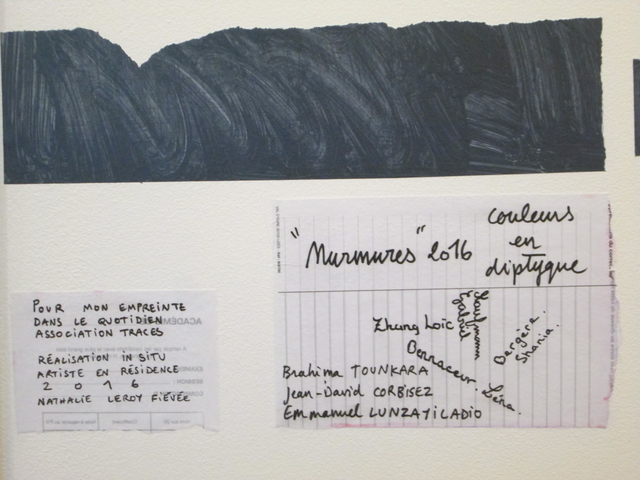 "Murmures" 2016
couleurs
en
diptyque
Zhung Loïc
Gabriel
Kaufmann
Bergère.
Shania.
Bennaceur. Léna.
Brahima TOUNKARA
Jean-David CORBISEZ
Emmanuel LUNZAYILADIO
POUR MON EMPREINTE
DANS LE QUOTIDIEN
ASSOCIATION TRACES
RÉALISATION IN SITU
ARTISTE EN RÉSIDENCE
2016
NATHALIE LEROY FIÉVÉE